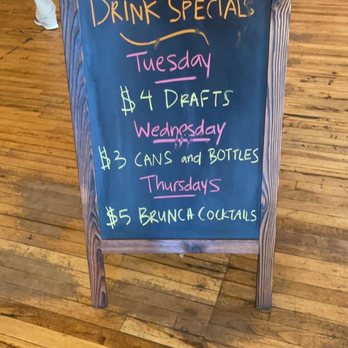 DRINK SPECIALS
Tuesday
$4 DRAFTS
Wednesday
$3 CANS and BOTTLES
Thursdays
$5 BRUNCH COCKTAILS